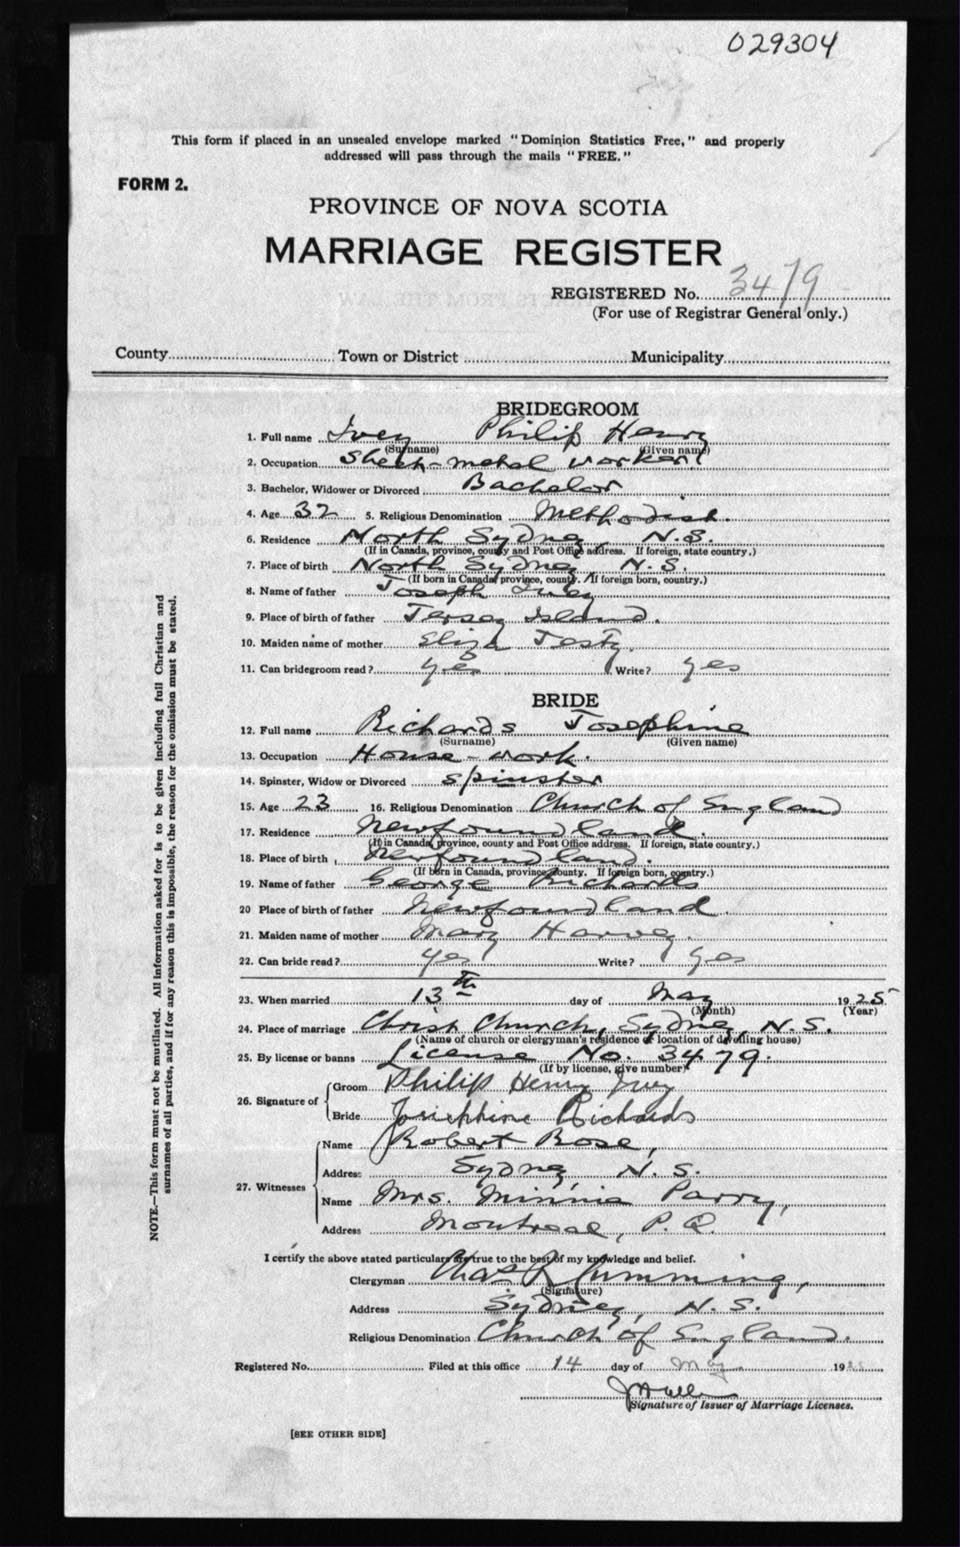 029304
This form if placed in an unsealed envelope marked "Dominion Statistics Free," and properly
addressed will pass through the mails "FREE."
FORM 2.
PROVINCE OF NOVA SCOTIA
MARRIAGE REGISTER
REGISTERED No. 3479
(For use of Registrar General only.)
County Town or District Municipality
BRIDEGROOM
1. Full name Ivey Philip Henry
(Surname) (Given name)
2. Occupation Sheet-metal worker
3. Bachelor, Widower or Divorced Bachelor
4. Age 32 5. Religious Denomination Methodist.
6. Residence North Sydney, N.S.
(If in Canada, province, county and Post Office address. If foreign, state country.)
7. Place of birth North Sydney N.S.
(If born in Canada, province, county. If foreign born, country.)
8. Name of father Joseph Ivey
9. Place of birth of father Jersey Island.
10. Maiden name of mother Eliza
11. Can bridegroom read? yes Write? yes
BRIDE
12. Full name Richards Josephine
(Surname) (Given name)
13. Occupation House-work.
14. Spinster, Widow or Divorced Spinster
15. Age 23 16. Religious Denomination Church of England
17. Residence Newfoundland.
(If in Canada, province, county and Post Office address. If foreign, state country.)
18. Place of birth Newfoundland.
(If born in Canada, province, county. If foreign born, country.)
19. Name of father George Richards
20 Place of birth of father Newfoundland.
21. Maiden name of mother Mary Harvey
22. Can bride read? yes Write? yes
23. When married 13th day of May 1925
(Month) (Year)
24. Place of marriage Christ Church, Sydney, N.S.
(Name of church or clergyman's residence or location of dwelling house)
25. By license or banns License No. 3479.
(If by license, give number)
26. Signature of
Groom Philip Henry Ivey
Bride Josephine Richards
27. Witnesses
Name Robert Rose,
Address Sydney, N.S.
Name Mrs. Minnie Parry,
Address Montreal, P.Q.
I certify the above stated particulars are true to the best of my knowledge and belief.
Clergyman Chas R Cumming,
(Signature)
Address Sydney, N.S.
Religious Denomination Church of England.
Registered No. Filed at this office 14 day of May 19
Signature of Issuer of Marriage Licenses.
[SEE OTHER SIDE]
NOTE.—This form must not be mutilated. All information asked for is to be given including full Christian and
surnames of all parties, and if for any reason this is impossible, the reason for the omission must be stated.